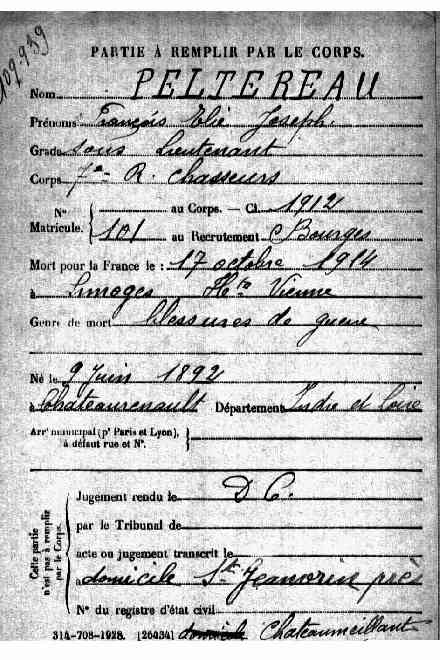 109.939
PARTIE À REMPLIR PAR LE CORPS.
Nom PELTEREAU
Prénoms François Elie Joseph.
Grade Sous Lieutenant
Corps 7me R. Chasseurs
N° Matricule. { au Corps. — Cl. 1912
101 au Recrutement Bourges
Mort pour la France le : 17 octobre 1914
à Limoges Hte Vienne
Genre de mort blessures de guerre
Né le 9 Juin 1892
à Chateaurenault Département Indre et Loire
Arrt municipal (pr Paris et Lyon), à défaut rue et N°. }
Cette partie n'est pas à remplir par le Corps. {
Jugement rendu le D C.
par le Tribunal de
acte ou jugement transcrit le
à domicile St Jeanvrin près
N° du registre d'état civil
314-708-1928. [26434] Chateaumeillant